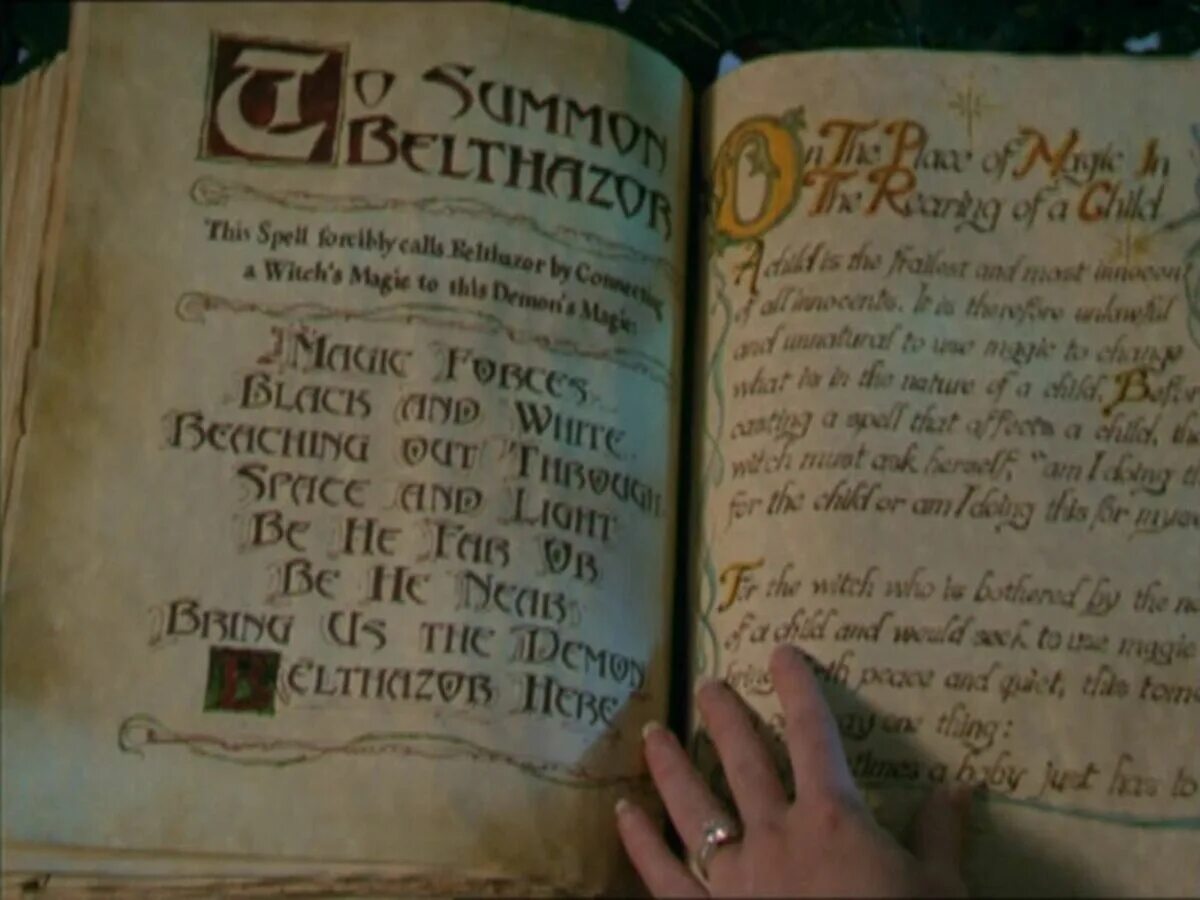 To Summon
Belthazor
This Spell forcibly calls Belthazor by Connecting
a Witch's Magic to this Demon's Magic.
Magic Forces
Black and White
Reaching out Through
Space and Light
Be He Far Or
Be He Near
Bring Us the Demon
Belthazor Here
On The Place of Magic In
The Rearing of a Child
A child is the frailest and most innocent
of all innocents. It is therefore unlawful
and unnatural to use magic to change
what is in the nature of a child. Before
casting a spell that affects a child, the
witch must ask herself, "am I doing
for the child or am I doing this for
For the witch who is bothered by the
of a child and would seek to use magic
peace and quiet, this
one thing:
times a baby just has to